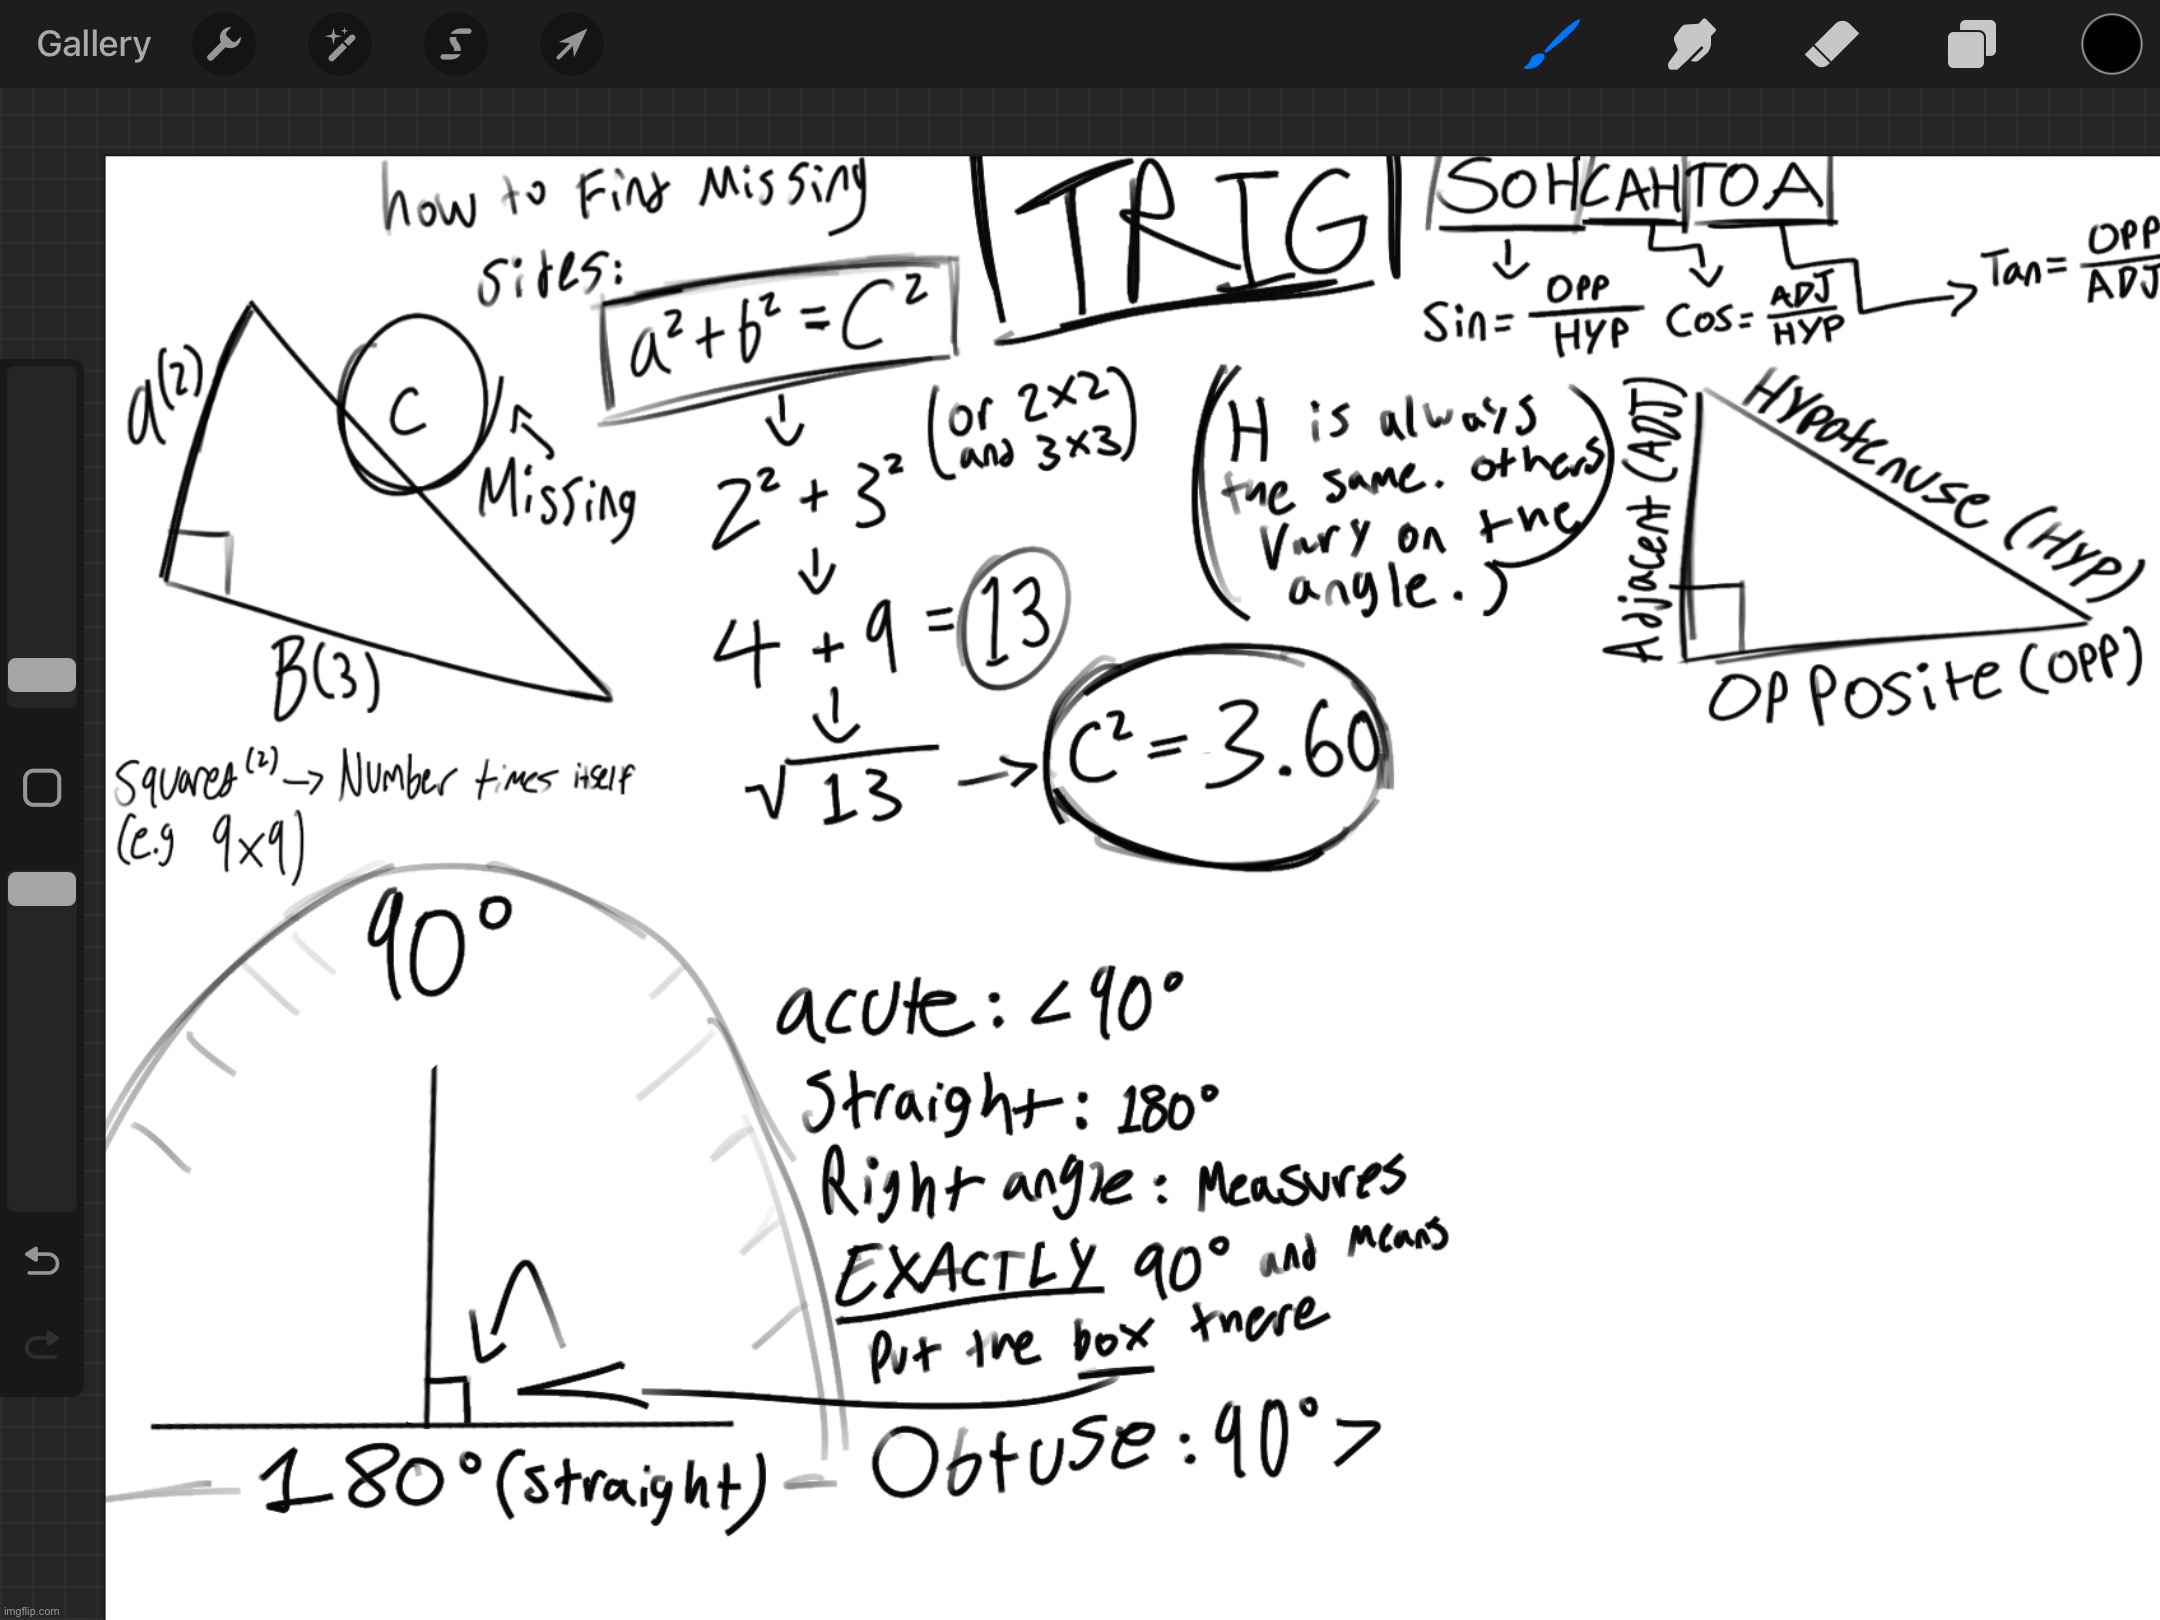 Gallery
how to Find Missing
sides:
a² + b² = C²
a(2)
C
Missing
B(3)
(or 2x2
and 3x3)
2² + 3²
4 + 9 = 13
√13 → C² = 3.60
Squared (2) → Number times itself
(e.g 9x9)
TRIG
SOHCAHTOA
Sin = OPP
HYP
Cos = ADJ
HYP
Tan = OPP
ADJ
(H is always
the same. others
Vary on the
angle.)
Adjacent (ADJ)
Hypotenuse (HYP)
OPPosite (OPP)
90°
180° (straight)
acute: < 90°
Straight: 180°
Right angle: Measures
EXACTLY 90° and means
Put the box there
Obtuse: 90° >
imgflip.com